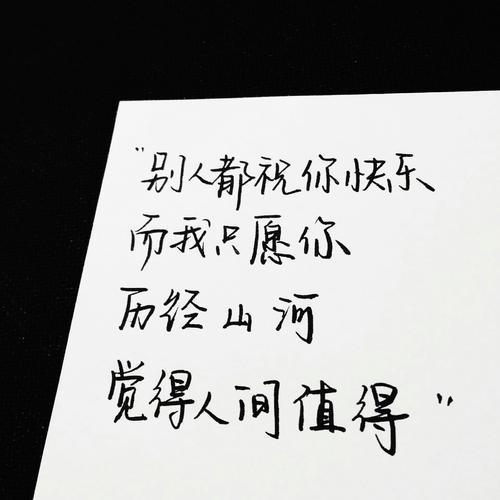 "别人都祝你快乐
而我只愿你
历经山河
觉得人间值得"